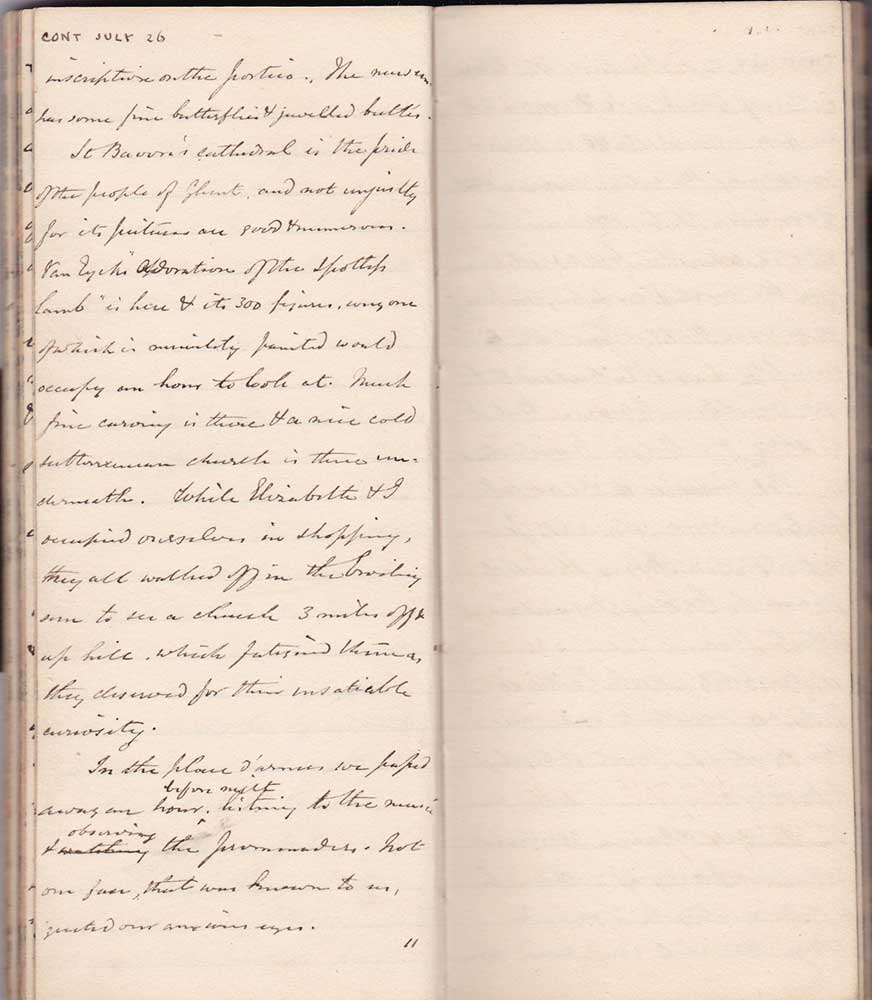 CONT JULY 26
inscription on the portico. The museum
has some fine butterflies & jewelled beetles.
St Bavon's cathedral is the pride
of the people of Ghent, and not unjustly
for its pictures are good & numerous.
Van Eyck's "Adoration of the spotless
lamb" is here & its 300 figures, any one
of which is minutely painted would
occupy an hour to look at. Much
fine carving is there & a nice cold
subterranean church is there un-
derneath. While Elizabeth & I
occupied ourselves in shopping,
they all walked off in the broiling
sun to see a church 3 miles off &
up hill, which fatigued them as
they deserved for their insatiable
curiosity.
In the place d'armes we passed
before night
away an hour, listning to the music
observing
& watching the promenaders. Not
one face, that was known to us,
greeted our anxious eyes.
11